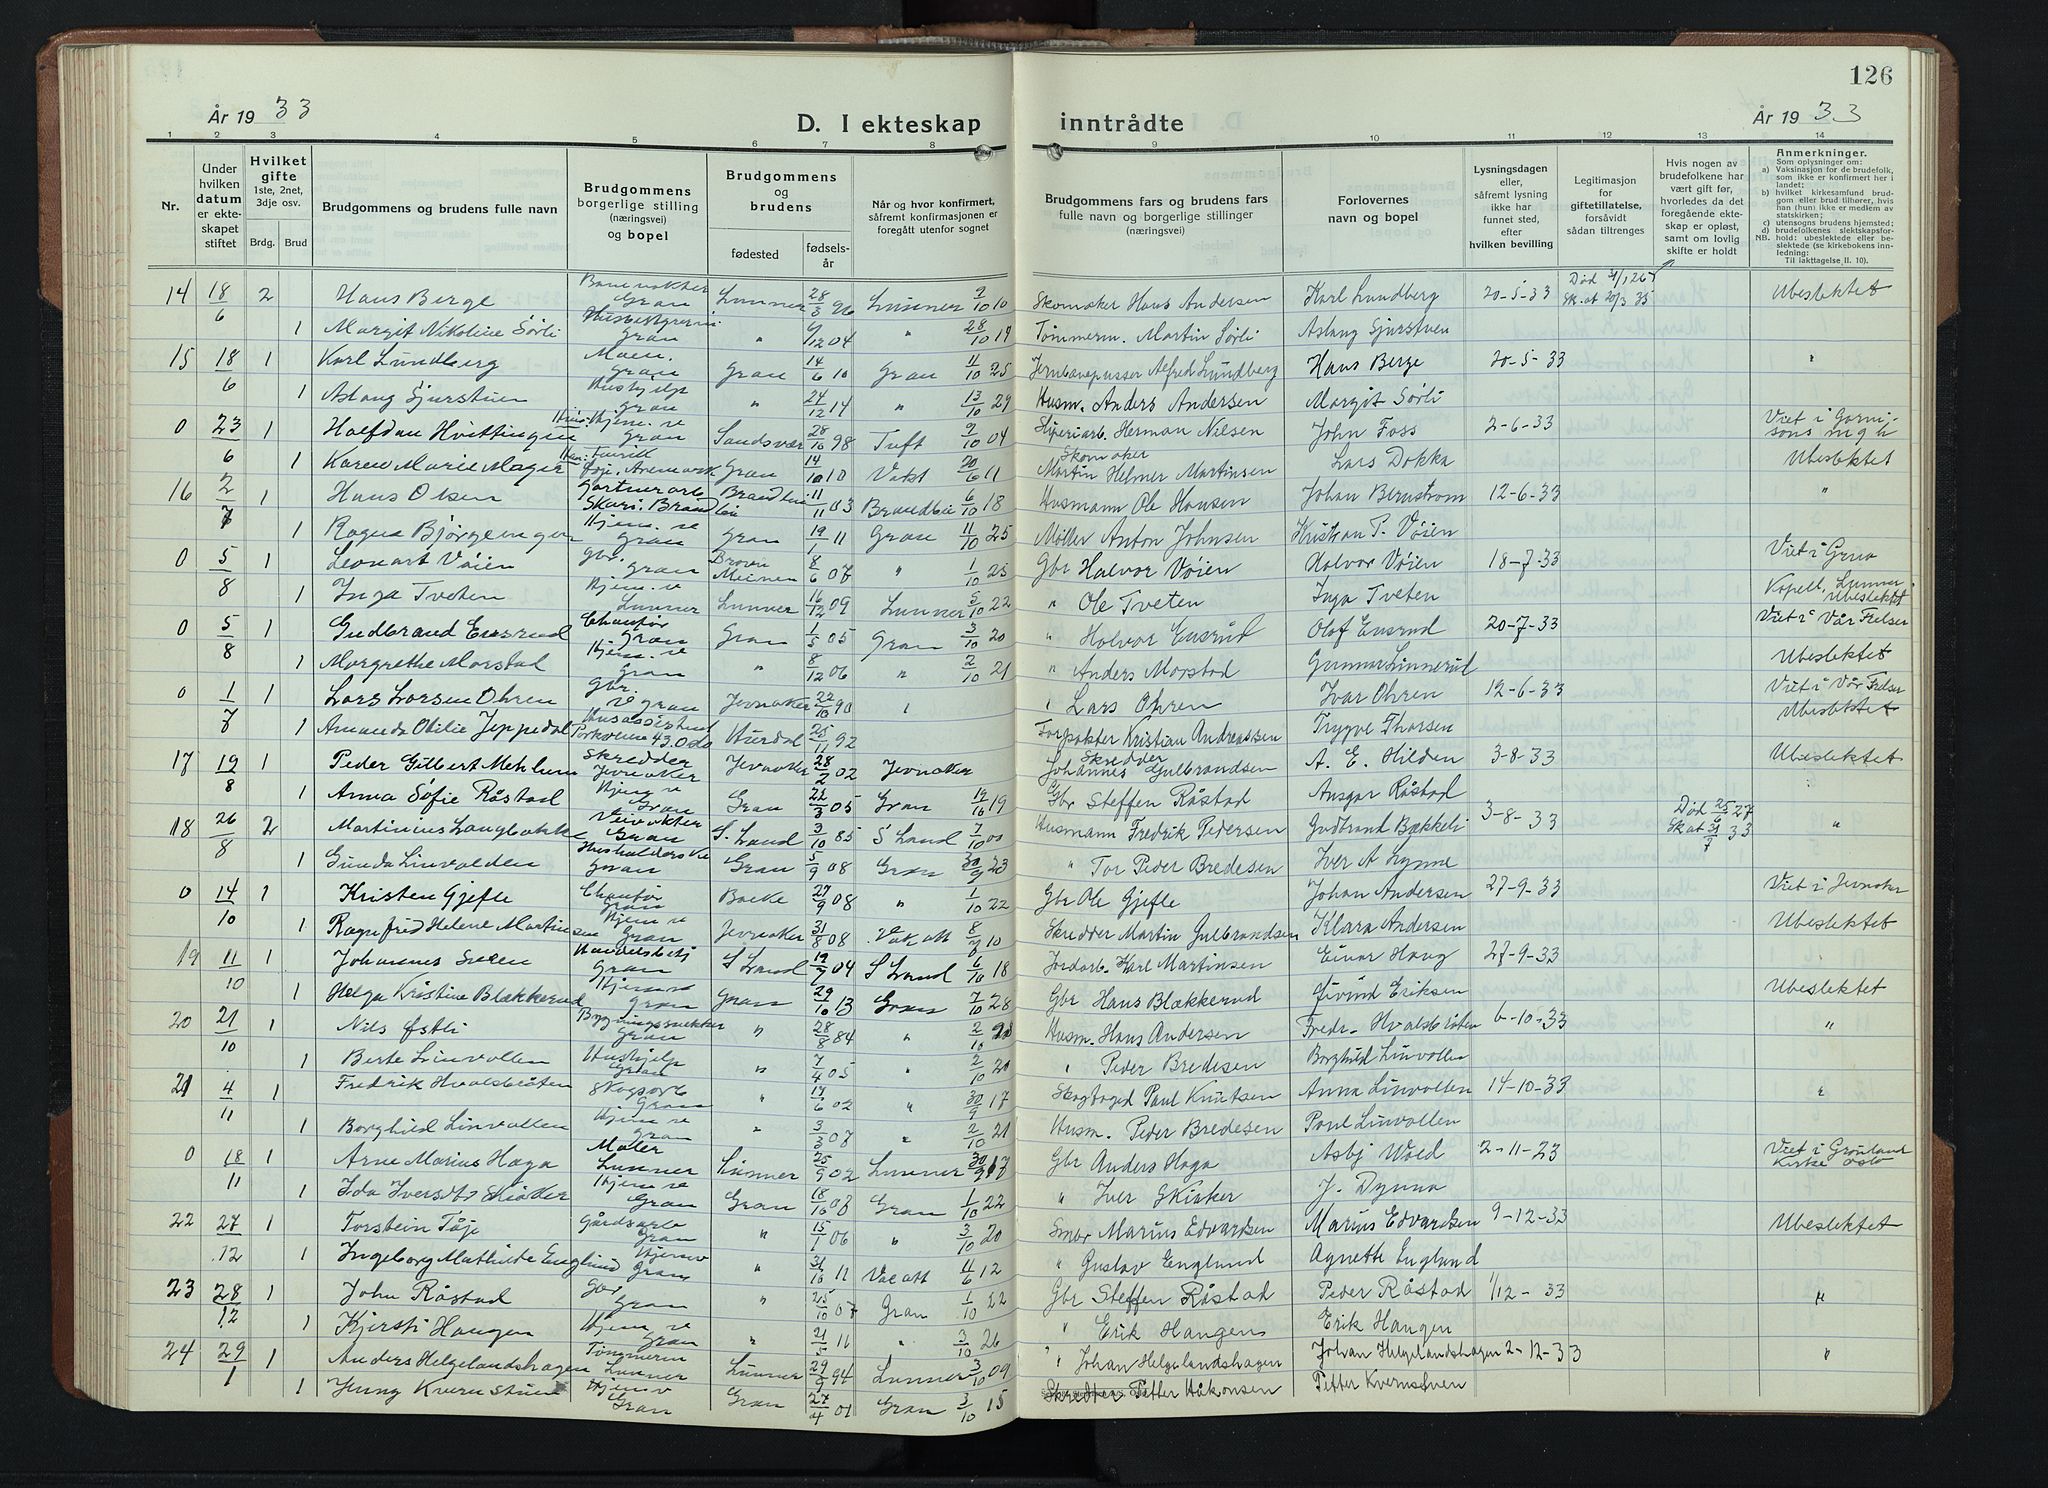 126
År 1933
D. I ekteskap inntrådte
År 1933
1 2 3 4 5 6 7 8 9 10 11 12 13 14
Nr.
Under hvilken datum er ekteskapet stiftet
Hvilket gifte 1ste, 2net, 3dje osv.
Brdg. Brud
Brudgommens og brudens fulle navn
Brudgommens borgerlige stilling (næringsvei) og bopel
Brudgommens og brudens
fødested
fødselsår
Når og hvor konfirmert, såfremt konfirmasjonen er foregått utenfor sognet
Brudgommens fars og brudens fars fulle navn og borgerlige stillinger (næringsvei)
Forlovernes navn og bopel
Lysningsdagen eller, såfremt lysning ikke har funnet sted, efter hvilken bevilling
Legitimasjon for giftetillatelse, forsåvidt sådan tiltrenges
Hvis nogen av brudefolkene har vært gift før, hvorledes da det foregående ekteskap er opløst, samt om lovlig skifte er holdt
Anmerkninger.
Som oplysninger om:
a) Vaksinasjon for de brudefolk, som ikke er konfirmert her i landet;
b) hvilket kirkesamfund brudgom eller brud tilhører, hvis han (hun) ikke er medlem av statskirken;
c) utensogns brudens hjemsted;
d) brudefolkenes slektskapsforhold: ubeslektede eller beslektede (se kirkebokens innledning:
NB. Til iakttagelse II. 10).
14 18/6 2 Hans Berge Banevakter Gran Lunner 28/3 Lunner 9/10 10 Skomaker Hans Andersen Karl Lundberg 20-5-33 Død Sk.at Ubeslektet
1 Margit Nikoline Sørli Gran " 9/12 04 " 28/10 19 Tømmerm. Martin Sørli Aslaug Sjurstuen
15 18/6 1 Karl Lundberg Gran Gran 14/6 10 Gran 4/10 25 Jernbanepusser Alfred Lundberg Hans Berge 20-5-33 "
1 Aslaug Sjurstuen Hushjelp Gran " 24/12 14 " 13/10 29 Husm. Anders Andersen Margit Sørli
0 23/6 1 Halfdan Hvittingen Gran Sandsvær 28/10 98 Tuft 9/10 04 Herman Nilsen John Foss 2-6-33 Viet i Garnisons mgh
1 Karen Marie Mager Gran 14/10 10 Vakt 20/6 11 Skomaker Martin Helmer Martinsen Lars Dokka Ubeslektet
16 2/7 1 Hans Olsen Gartnerarb Brandbu 11/11 03 Brandbu 6/10 18 Husmann Ole Hansen Johan Bernstrøm 12-6-33 "
1 Ragna Bjørgeengen Hjem. se Gran Gran 19/1 11 Gran 11/10 25 Møller Anton Johnsen Kristian P. Vøien
0 5/8 1 Leonart Vøien Gbr. Gran 8/6 07 " 1/10 23 Gbr Halvor Vøien Halvor Vøien 18-7-33 Viet i Grua
1 Inga Tveten Hjem. v Lunner Lunner 16/12 09 Lunner 5/10 22 " Ole Tveten Inga Tveten Kapell, Lunner Ubeslektet
0 5/8 1 Gudbrand Ensrud Chaufør Gran Gran 1/5 05 Gran 3/10 20 " Halvor Ensrud Olaf Ensrud 20-7-33 Viet i Vår Frelser
1 Margrethe Morstad Hjem. se Gran " 8/12 06 " 2/10 21 " Anders Morstad Gunnar Linnerud Ubeslektet
0 1/7 1 Lars Larsen Ohren Gbr. Gran Jevnaker 22/10 90 " Lars Ohren Ivar Ohren 12-6-33 Viet i Vår Frelser
1 Amanda Otilie Jeppedal Oslo Hurdal 25/11 92 Forpakter Kristian Andreassen Trygve Thorsen Ubeslektet
17 19/8 1 Peder Gilbert Mehlum Skredder Jevnaker Jevnaker 28/2 02 Jevnaker Skredder Johannes Gulbrandsen A. E. Hilden 3-8-33 Ubeslektet
1 Anna Sofie Råstad Hjem se Gran Gran 22/3 05 Gran 19/10 19 Gbr Steffen Råstad Ansgar Råstad
18 26/8 2 Martinus Langbakke Veivokter Gran S. Land 3/10 85 S Land 7/10 00 Husmann Fredrik Pedersen Gudbrand Bækkeli 3-8-33 Død 25/6 27 Sk at 31/7 33 "
1 Gunda Linvolden Husholderske Gran Gran 5/9 08 Gran 30/9 23 " Tor Peder Bredesen Iver A Lynne
0 14/10 1 Kristen Gjefle Chaufør Gran 27/9 08 " 1/10 22 Gbr Ole Gjefle Johan Andersen 27-9-33 Viet i Jevnaker
1 Ragnfrid Helene Martinsen Hjem se Gran Jevnaker 31/8 08 Vakatt 8/9 10 Skredder Martin Gulbrandsen Klara Andersen Ubeslektet
19 11/10 1 Johannes Sveen Gran S Land 04 S Land 6/10 18 Jordarb. Karl Martinsen Einar Haug 27-9-33
1 Helga Kristine Blækkerud Hjem se Gran Gran 29/10 13 Gran 7/10 28 Gbr Hans Blækkerud Øivind Eriksen Ubeslektet
20 21/10 1 Nils Østli Gran " 28/8 84 " 2/10 Husm. Hans Andersen Fredr. Hvalsbråten 6-10-33 "
1 Berte Linvollen Hushjelp Gran " 7/4 05 " 2/10 20 " Peder Bredesen Borghild Linvollen
21 4/11 1 Fredrik Hvalsbråten Skogsarb Gran " 17/6 02 " 30/9 17 Paul Knutsen Anna Linvollen 14-10-33 "
1 Borghild Linvollen Hjem se Gran " 3/3 07 " 2/10 21 Husm. Peder Bredesen Paul Linvollen
0 18/11 1 Arne Marius Haga Maler Lunner Lunner 25/9 02 Lunner 30/9 17 Gbr Anders Haga Asbj Wold 2-11-23 Viet i Grønland Kirke Oslo
1 Ida Hjem se Gran Gran 18/10 03 Gran 1/10 22 " Iver Skiaker J. Dynna
22 27/12 1 Torstein Tåje Gårdsarb Gran " 15/1 06 " 3/10 20 Smbr Marius Edvardsen Marius Edvardsen 9-12-33 Ubeslektet
1 Ingeborg Mathilde Englund Hjemv Gran " 31/10 11 Vac att 4/6 12 " Gustav Englund Agnette England
23 28/12 1 John Råstad Gbr Gran " 25/10 07 Gran 1/10 22 Gbr Steffen Råstad Peder Råstad 1/12-33 "
1 Kjersti Haugen Hjem se Gran " 21/5 11 " 3/10 26 " Erik Haugen Erik Haugen
24 29/1 1 Anders Helgelandshagen Tømmerm Lunner Lunner 29/9 94 Lunner 3/10 09 " Johan Helgelandshagen Johan Helgelandshagen 2-12-33 "
1 Jenny Kvernstuen Hjem v Gran Gran 27/4 01 Gran 3/10 15 Skredder Petter Håkonsen Petter Kvernstuen